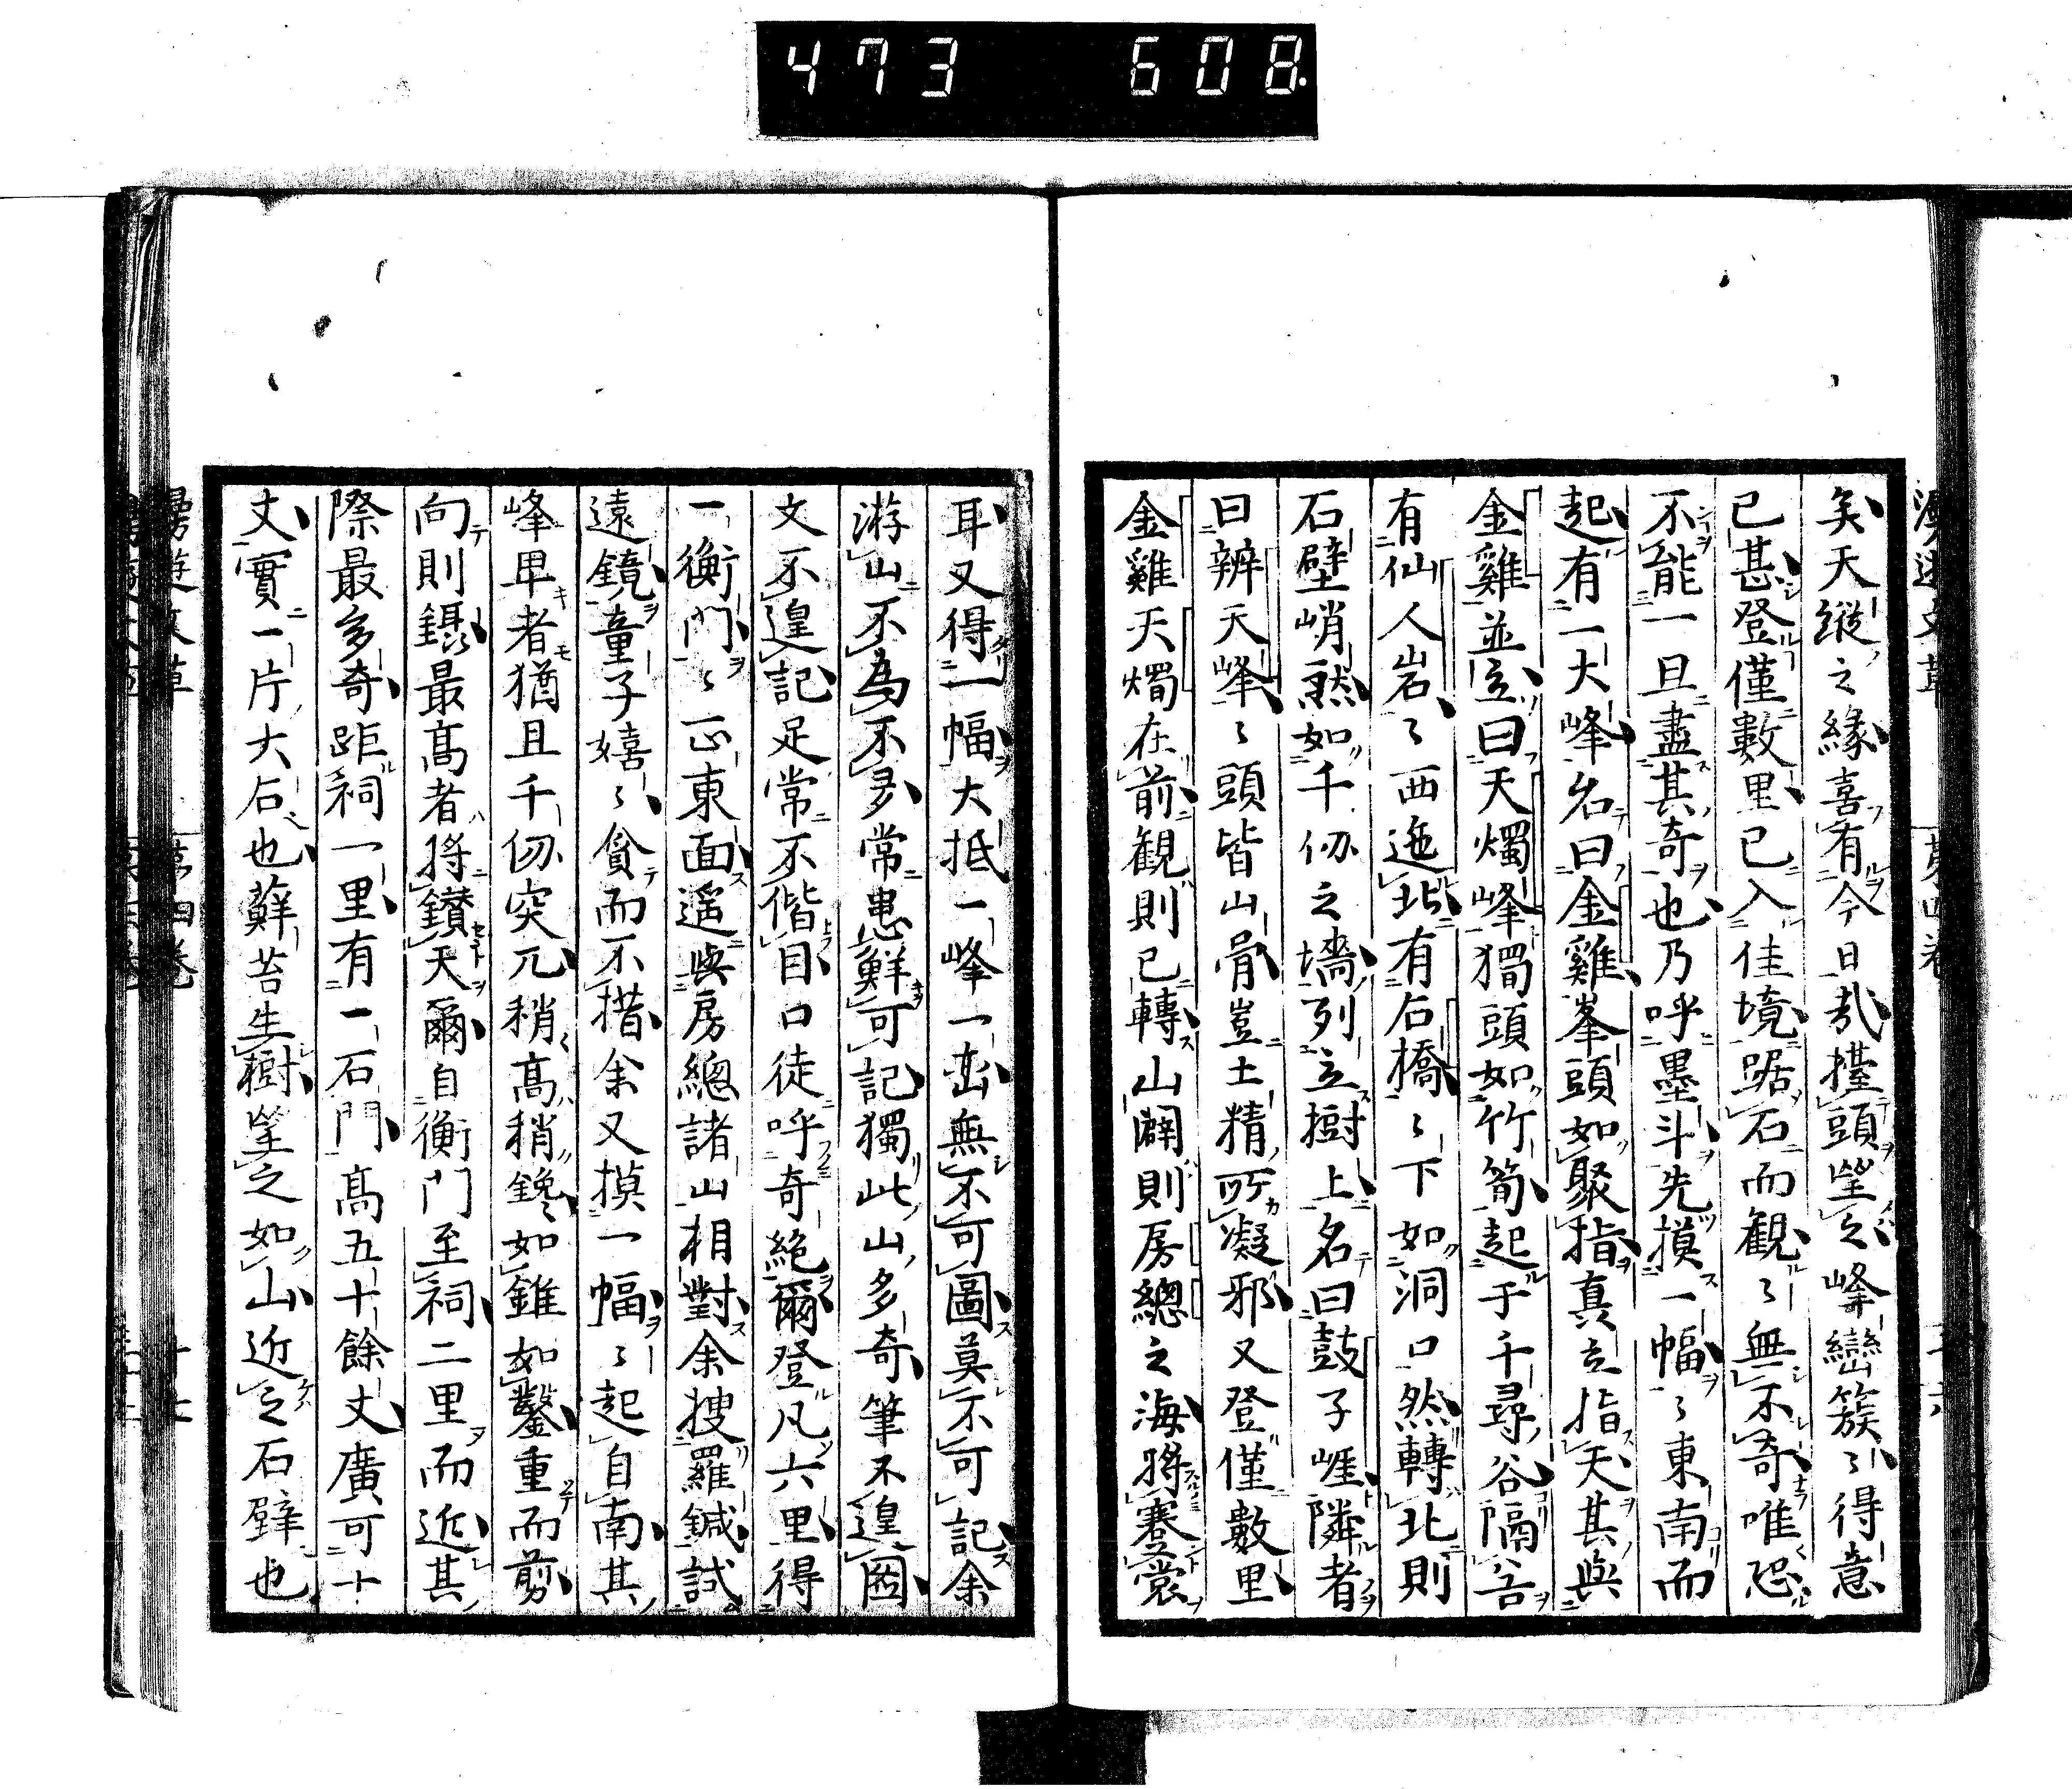 473 608
矣天縱之緣喜有今日哉擡頭望之峰巒簇〻得意
已甚登僅數里已入佳境踞石而觀〻無不奇唯恐
不能一旦盡其奇也乃呼墨斗先摸一幅〻東南而
起有一大峰名曰金雞峯頭如聚指真立指天其與
金雞並立曰天燭峰獨頭如竹筍起于千尋谷隔谷
有仙人岩〻西迤北有石橋〻下如洞口然轉北則
石壁峭然如千仞之墻列立樹上名曰鼓子崕隣者
曰辨天峰〻頭皆山骨豈土精所凝邪又登僅數里
金雞天燭在前觀則已轉山闢則房總之海將蹇裳
耳又得一幅大抵一峰一岩無不可圖莫不可記余
游山不為不多常患鮮可記獨此山多奇筆不遑圖
文不遑記足常不偕目口徒呼奇絕爾登凡六里得
一衡門〻正東面遥與房總諸山相對余搜羅鍼試
遠鏡童子嬉〻貪而不措余又摸一幅〻起自南其
峰卑者猶且千仞突兀稍高稍鑱如錐如鑿重而剪
向則鑷最高者將鑚天爾自衡門至祠二里而近其
際最多奇距祠一里有一石門高五十餘丈廣可十
丈實一片大石也蘚苔生樹望之如山近之石壁也